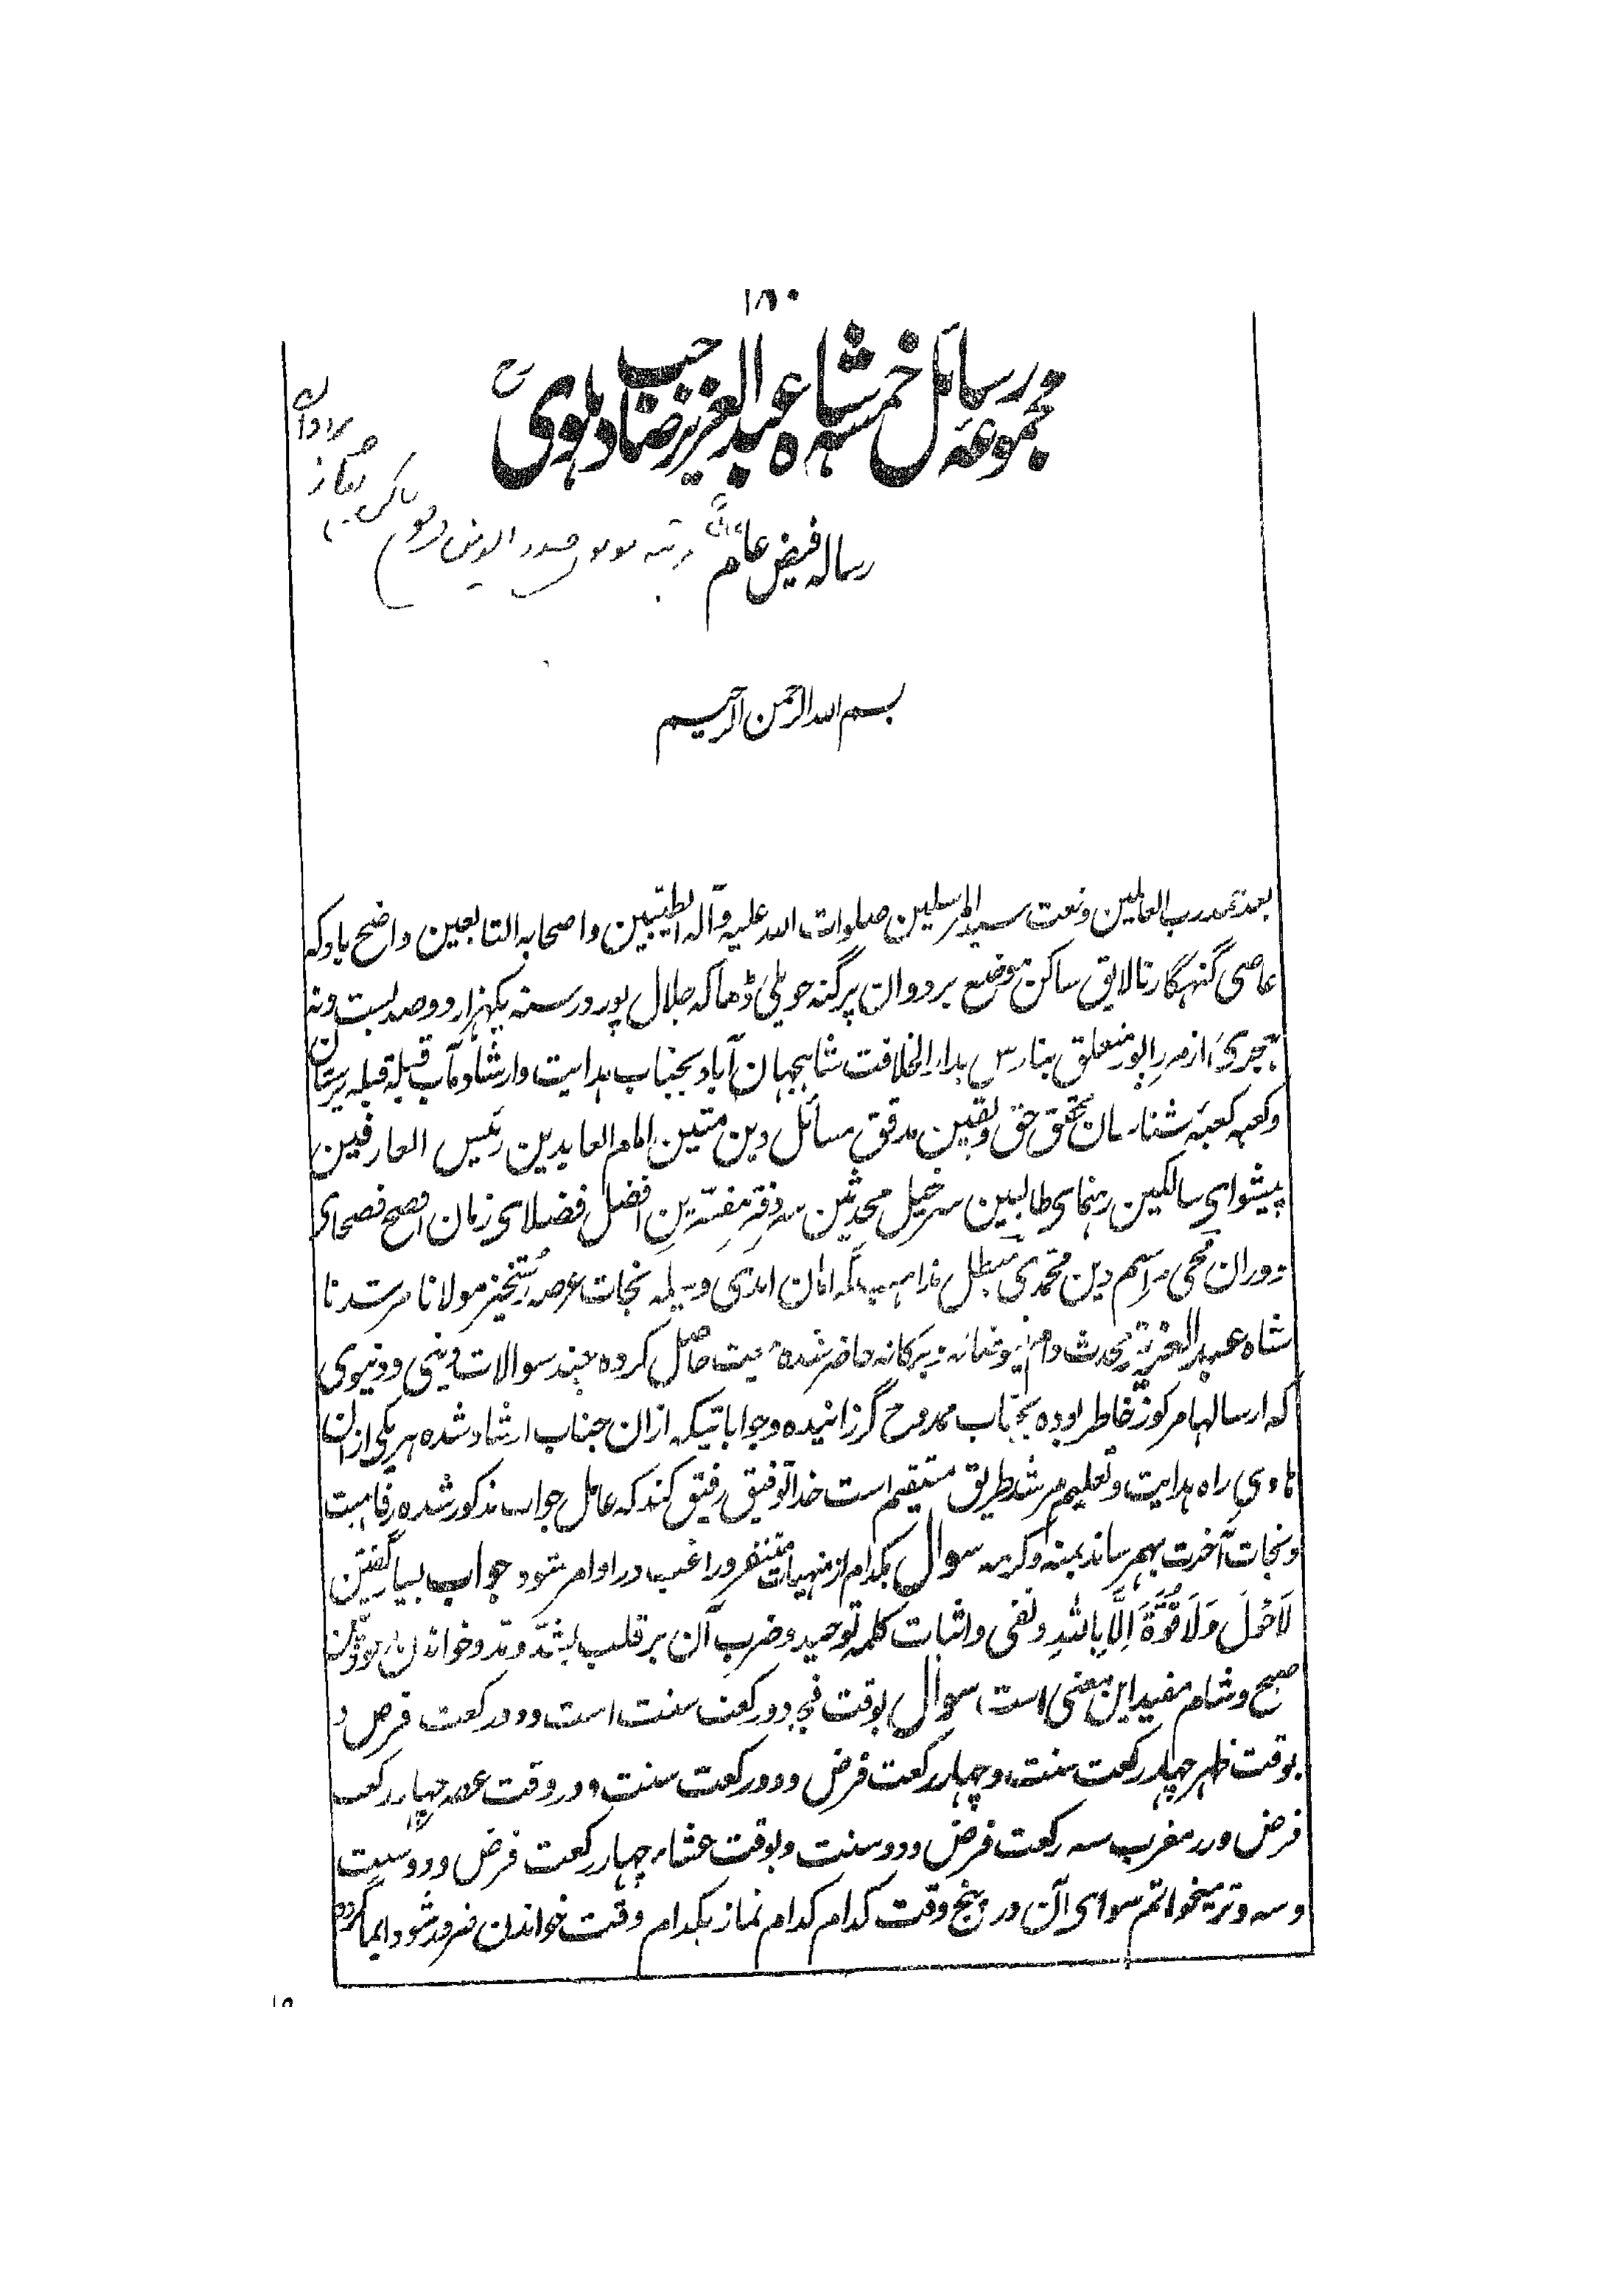 ۱۸۰
مجموعہ رسائل خمسہ شاہ عبد العزیز صاحب دہلوی رح
رسالہ فیض عام
بسم اللہ الرحمن الرحیم
بعد حمد رب العالمین و نعت سید المرسلین صلوات اللہ علیہ و آلہ الطیبین و اصحابہ التابعین واضح باد کہ
عاصی گنہگار نالایق ساکن موضع بردوان پرگنہ حویلی ڈھاکہ جلال پور در سنہ یکہزار و دو صد بست و نہ
ہجری از مرزاپور متعلق بنارس بدار الخلافت شاہجہان آباد بجناب ہدایت و ارشاد مآب قبلہ قبلہ پرستان
و کعبہ کعبہ شناسان محقق حق و یقین مدقق مسائل دین متین امام العابدین رئیس العارفین
پیشوای سالکین رہنمای طالبین سرخیل محدثین سر دفتر مفسرین افضل فضلای زمان افصح فصحای
دوران محی مراسم دین محمدی مبطل مذاہب امان ابدی وسیلہ نجات عرصہ رستخیز مولانا مرشدنا
شاہ عبد العزیز محدث دام فیوضاتہ و برکاتہ حاضر شدہ بیعت حاصل کردہ چند سوالات دینی و دنیوی
کہ از سالہا مرکوز خاطر بودہ بجناب ممدوح گزرانیدہ و جواباتیکہ ازان جناب ارشاد شدہ ہر یکی ازان
ہادی راہ ہدایت و تعلیم مرشد طریق مستقیم است خدا توفیق رفیق کند کہ عامل جواب مذکور شدہ رفاہیت
و نجات آخرت بہم رساند بمنہ و کرمہ سوال بکدام از منہیات متنفر و راغب در اوامر شود جواب بسیار گفتن
لَا حَوْلَ وَلَا قُوَّةَ اِلَّا بِاللّٰہِ و نفی و اثبات کلمہ توحید و ضرب آن بر قلب بشد و مد و خواندن
صبح و شام مفید این معنی است سوال بوقت فجر دو رکعت سنت است و دو رکعت فرض و
بوقت ظہر چہار رکعت سنت و چہار رکعت فرض و دو رکعت سنت و در وقت عصر چہار رکعت
فرض و در مغرب سہ رکعت فرض و دو سنت و بوقت عشاء چہار رکعت فرض و دو سنت
و سہ وتر میخوانم سوای آن در پنج وقت کدام کدام نماز بکدام وقت خواندن ضرور شود ایما گردد